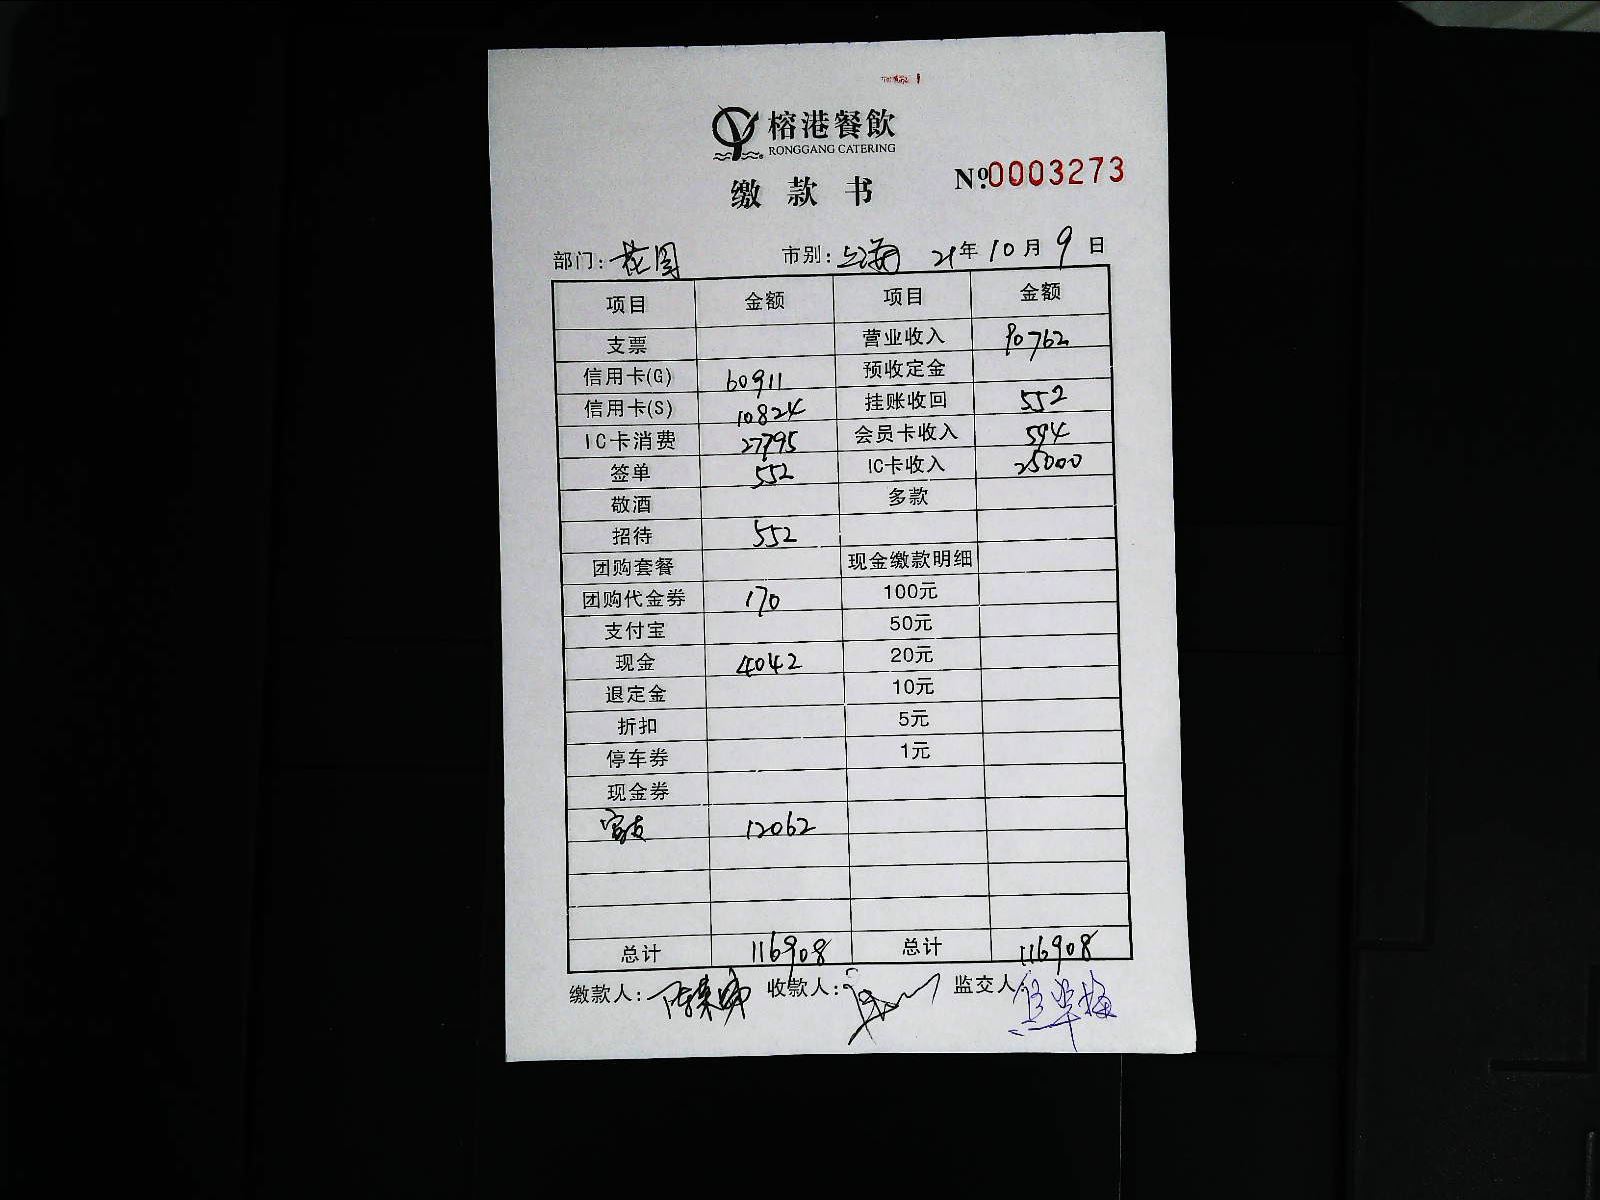 榕港餐飲
RONGGANG CATERING
缴款书
№0003273
部门: 花园 市别: 上海 21年10月9日
项目 金额 项目 金额
支票 营业收入 90762
信用卡(G) 60911 预收定金
信用卡(S) 10824 挂账收回 552
IC卡消费 27795 会员卡收入 594
签单 552 IC卡收入 25000
敬酒 多款
招待 552
团购套餐 现金缴款明细
团购代金券 170 100元
支付宝 50元
现金 4042 20元
退定金 10元
折扣 5元
停车券 1元
现金券
富友 12062
总计 116908 总计 116908
缴款人: 收款人: 监交人